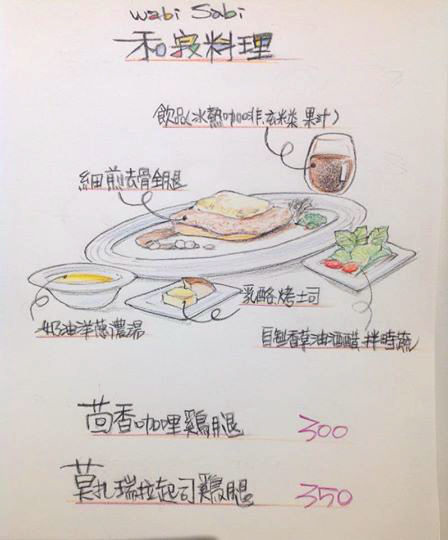 wabi Sabi
和寂料理
飲品(冰熱咖啡.玄米茶 果汁)
細煎去骨全腿
乳酪烤土司
奶油洋蔥濃湯
自製香草油酒醋拌時蔬
茴香咖哩鷄腿 300
莫扎瑞拉起司鷄腿 350